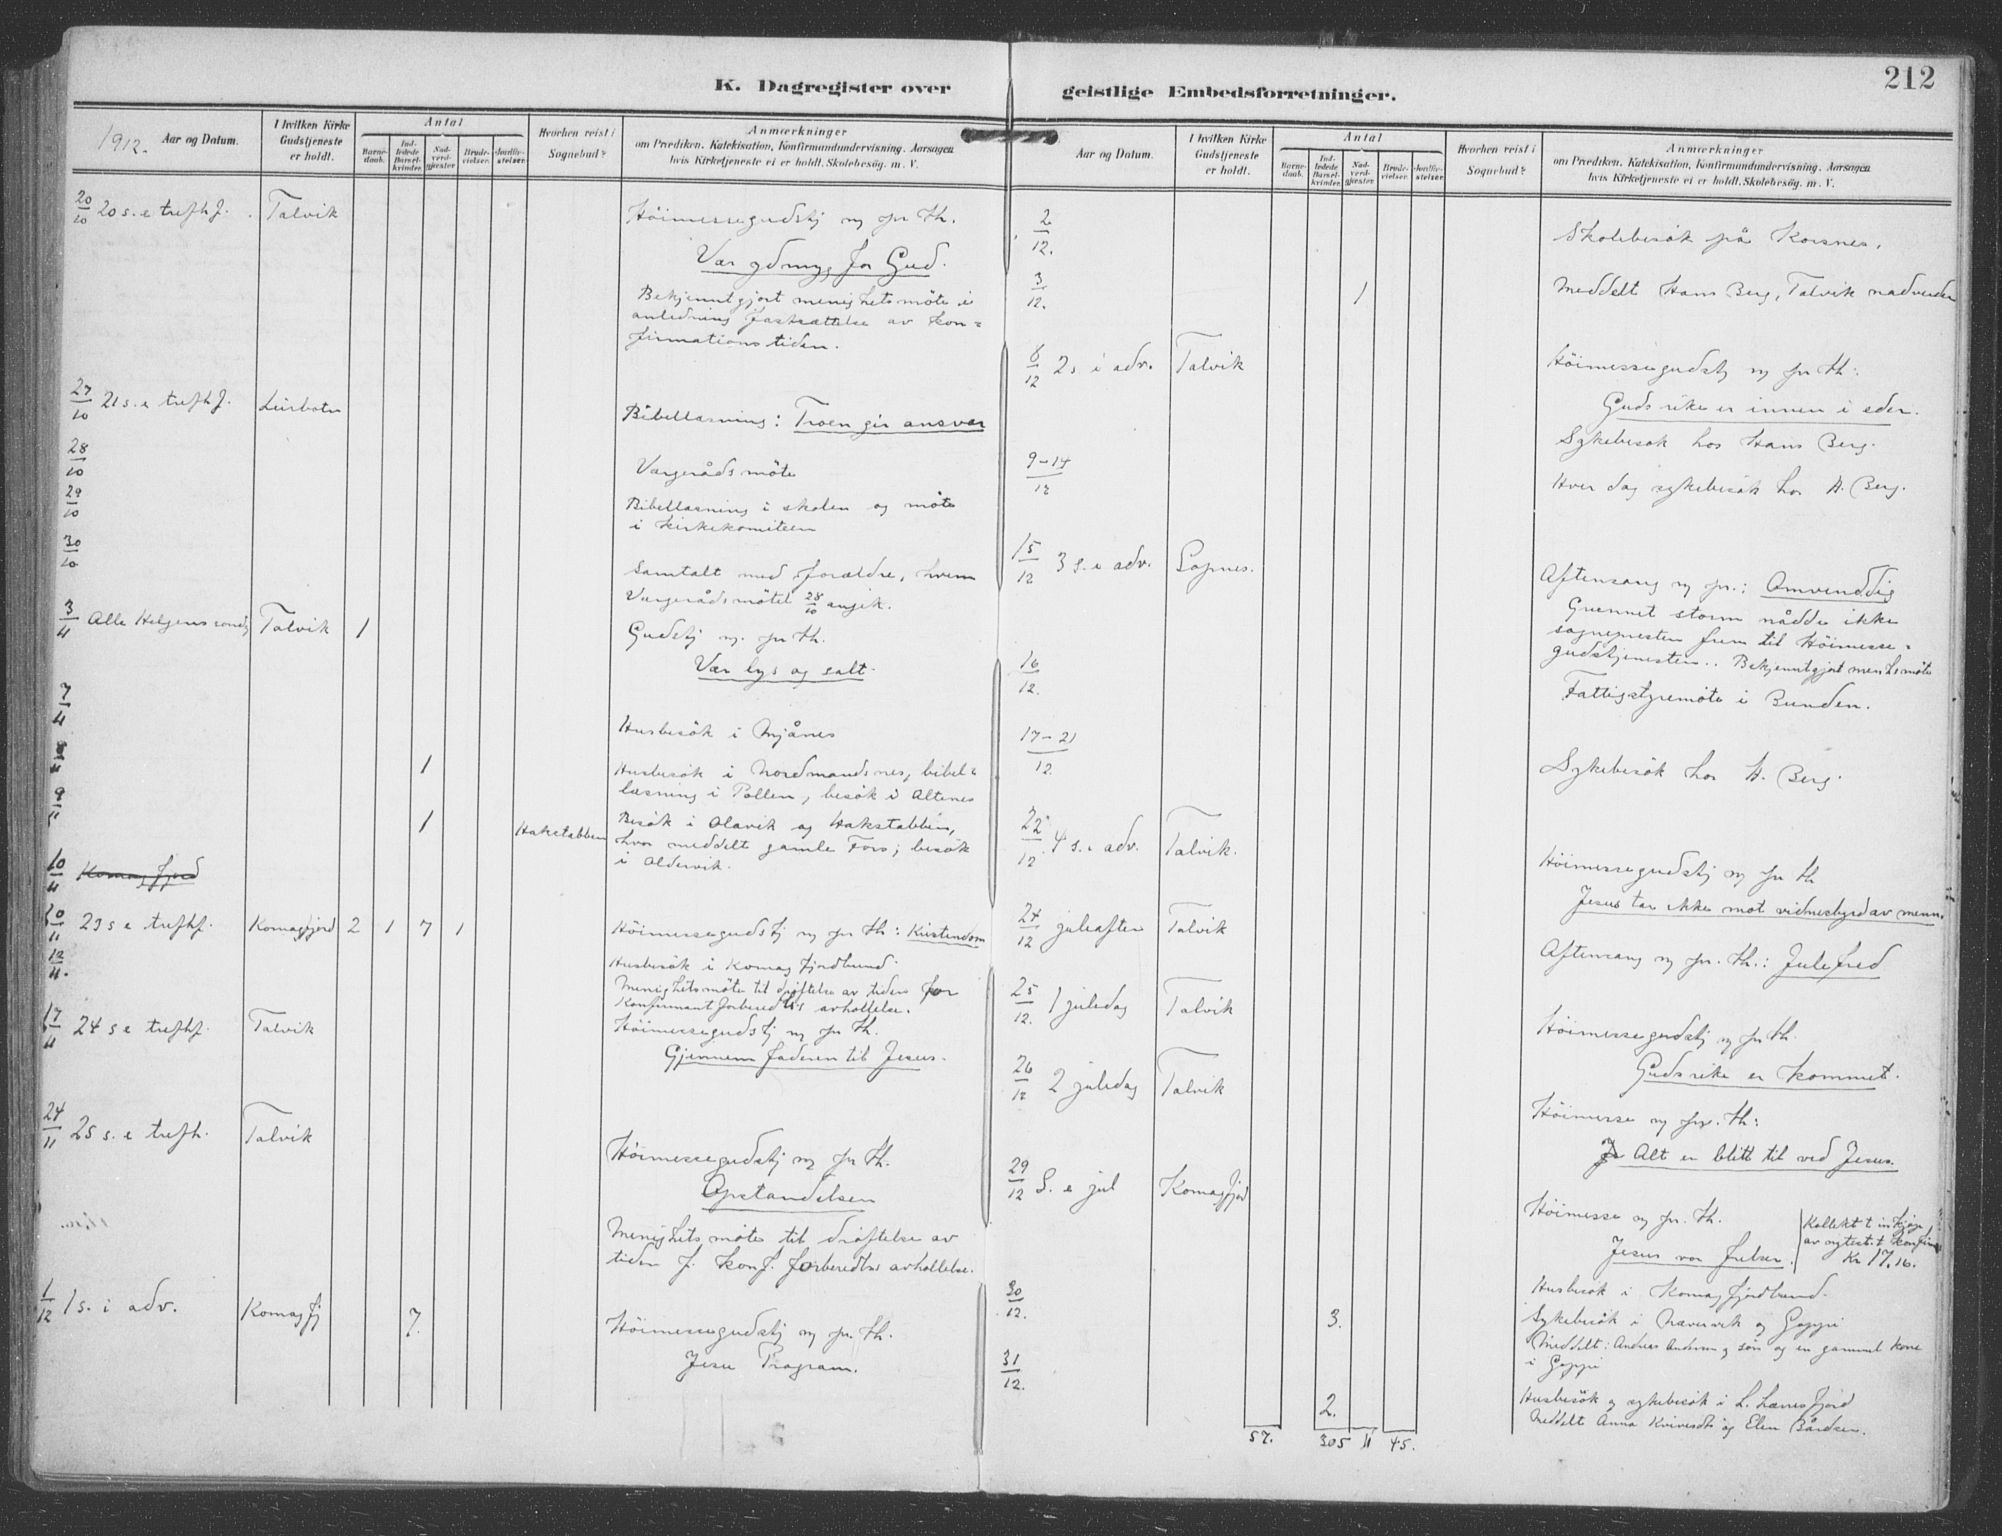 212
K. Dagregister over geistlige Embedsforretninger.
1912. Aar og Datum.
I hvilken Kirke Gudstjeneste er holdt.
Antal
Barnedaab.
Indledede Barselkvinder.
Nadverdgjester
Brudevielser.
Jordfæstelser.
Hvorhen reist i Sognebud?
Anmærkninger
om Prædiken, Katekisation, Konfirmandundervisning, Aarsagen
hvis Kirketjeneste ei er holdt, Skolebesøg, m. V.
20/10 20 s. e trefh f. Talvik Höimessegudstj og pr th.
Vær ydmyg for Gud.
Bekjenntgjort menighetsmöte i
anledning fastsættelse av kon=
firmationstiden.
27/10 21 s. e trefh f. Leirbotn Bibellæsning: Troen gir ansvar
28/10 Vergerådsmöte
29/10 Bibellæsning i skolen og möte
i kirkekomiteen
30/10 Samtalt med forældre, hvem
Vergerådsmötet 28/10 angik.
3/4 Alle Helgens söndg Talvik 1 Gudstj og pr th.
Vær lys og salt.
7/4 Husbesök i Mjånes
8/4 1 Husbesök i Nordmandsnes, bibel=
læsning i Pollen, besök i Altenes
9/11 1 Hakstabben Besök i Olavik og Hakstabben,
hvor meddelt gamle Fors; besök
10/11 Komagfjord i Oldervik.
10/11 23 s e trefhf. Komagfjord 2 1 7 1 Höimessegudstj og pr th: Kristendom
12/4. Husbesök i Komagfjordbund.
Menighetsmöte til dröftelse av tiden for
Konfirmantforberedtes avholtelse.
17/11 24 s e trefhf. Talvik Höimessegudstj og pr th.
Gjennem faderen til Jesus.
24/11 25 s. e trefh. Talvik Höimessegudstj og pr th.
Opstandelsen
Menighetsmöte til dröftelse av
tiden f. konf. forberedtes avholtelse.
1/12 1 s. i adv. Komagfj 7. Höimessegudstj og pr. th.
Jesu Program.
Aar og Datum.
I hvilken Kirke Gudstjeneste er holdt.
Antal
Barnedaab.
Indledede Barselkvinder.
Nadverdgjester
Brudevielser.
Jordfæstelser.
Hvorhen reist i Sognebud?
Anmærkninger
om Prædiken, Katekisation, Konfirmandundervisning, Aarsagen
hvis Kirketjeneste ei er holdt, Skolebesøg, m. V.
2/12. Skolebesök på Korsnes.
3/12. 1 Meddelt Hans Berg, Talvik nadverden
8/12 2 s i adv. Talvik Höimessegudstj og pr th:
Guds rike er innen i eder.
Sykebesök hos Hans Berg.
9-14/12 Hver dag sykebesök hos H. Berg.
15/12 3 s. i adv. Lopnes. Aftensang og pr.: Omvenddig
Grunnet storm nådde ikke
sognepresten frem til Höimesse=
gudstjenesten. Bekjenntgjort men hsmöte
16/12. Fattigstyremöte i Bunden.
17-21/12. Sykebesök hos H. Berg.
22/12. 4 s. i adv. Talvik. Höimessegudstj og pr th
Jesus tar ikke mot vidnesbyrd av menn.
24/12 juleaften Talvik Aftensang og pr. th.: Julefred
25/12. 1 juledag Talvik Höimessegudstj og pr th.
Guds rike er kommet.
26/12 2 juledag Talvik Höimesse og pr. th:
Alt er blitt til ved Jesus.
29/12 S. e jul Komagfjord Höimesse og pr. th.
Jesus vor frelser.
Kollekt t innkjöp
av nytest. t konfirm
Kr 17.16.
30/12. Husbesök i Komagfjordbund.
3. Sykebesök i Nævervik og Goppi
Meddelt: Andreas Andersen g sön og en gammel kone
31/12. i Goppi
2. Husbesök g sykebesök i L. Lærresfjord
Meddelt Anna Kvivesdtr og Elen Bårdsen.
57. 305 11 45.